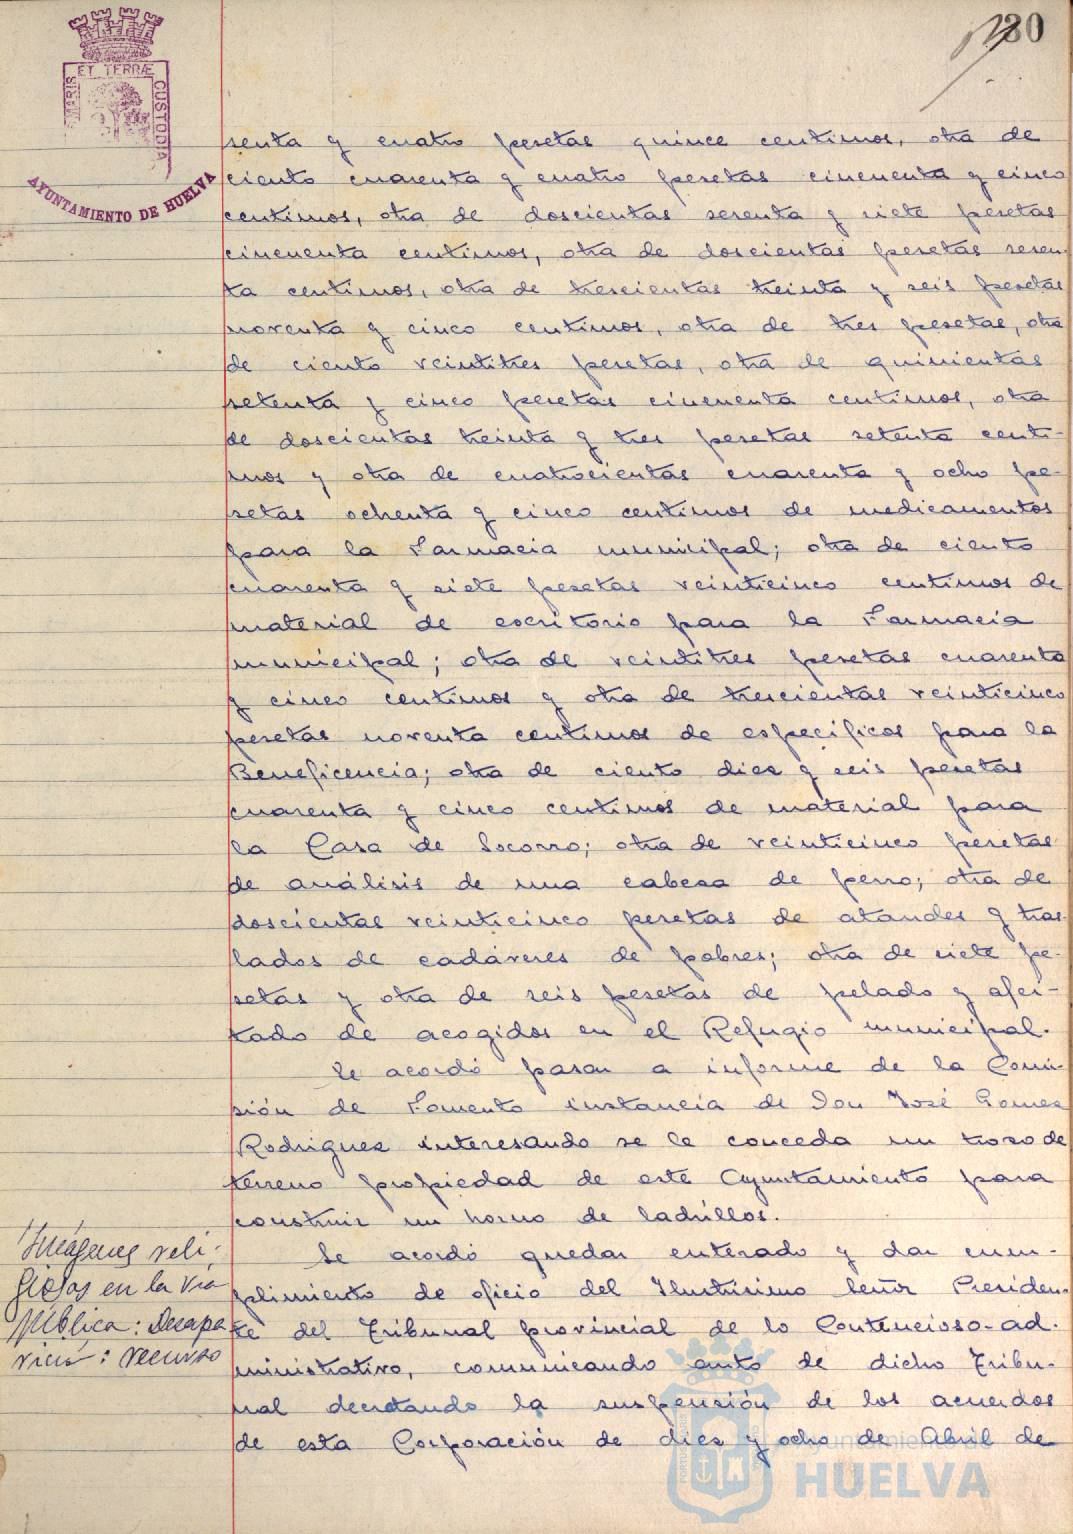 180
ET TERRÆ
MARIS
CUSTODIA
AYUNTAMIENTO DE HUELVA
senta y cuatro pesetas quince centimos, otra de
ciento cuarenta y cuatro pesetas cincuenta y cinco
centimos, otra de doscientas sesenta y siete pesetas
cincuenta centimos, otra de doscientas pesetas sesen-
ta centimos, otra de trescientas treinta y seis pesetas
noventa y cinco centimos, otra de tres pesetas, otra
de ciento veintitres pesetas, otra de quinientas
setenta y cinco pesetas cincuenta centimos, otra
de doscientas treinta y tres pesetas setenta centi-
mos y otra de cuatrocientas cuarenta y ocho pe-
setas ochenta y cinco centimos de medicamentos
para la Farmacia municipal; otra de ciento
cuarenta y siete pesetas veinticinco centimos de
material de escritorio para la Farmacia
municipal; otra de veintitres pesetas cuarenta
y cinco centimos y otra de trescientas veinticinco
pesetas noventa centimos de especificos para la
Beneficencia; otra de ciento diez y seis pesetas
cuarenta y cinco centimos de material para
la Casa de Socorro; otra de veinticinco pesetas
de análisis de una cabeza de perro; otra de
doscientas veinticinco pesetas de ataudes y tras-
lados de cadáveres de pobres; otra de siete pe-
setas y otra de seis pesetas de pelado y afei-
tado de acogidos en el Refugio municipal.
Se acordó pasar a informe de la Comi-
sión de Fomento instancia de Don José Gomez
Rodriguez interesando se le conceda un trozo de
terreno propiedad de este Ayuntamiento para
construir un horno de ladrillos.
Imágenes reli-
giosas en la via
pública: Desapa
rició: recurso
Se acordó quedar enterado y dar cum-
plimiento de oficio del Ilustrisimo Señor Presiden-
te del Tribunal provincial de lo Contencioso-ad-
ministrativo, comunicando auto de dicho Tribu-
nal decretando la suspensión de los acuerdos
de esta Corporación de diez y ocho de Abril de
Ayuntamiento de
HUELVA